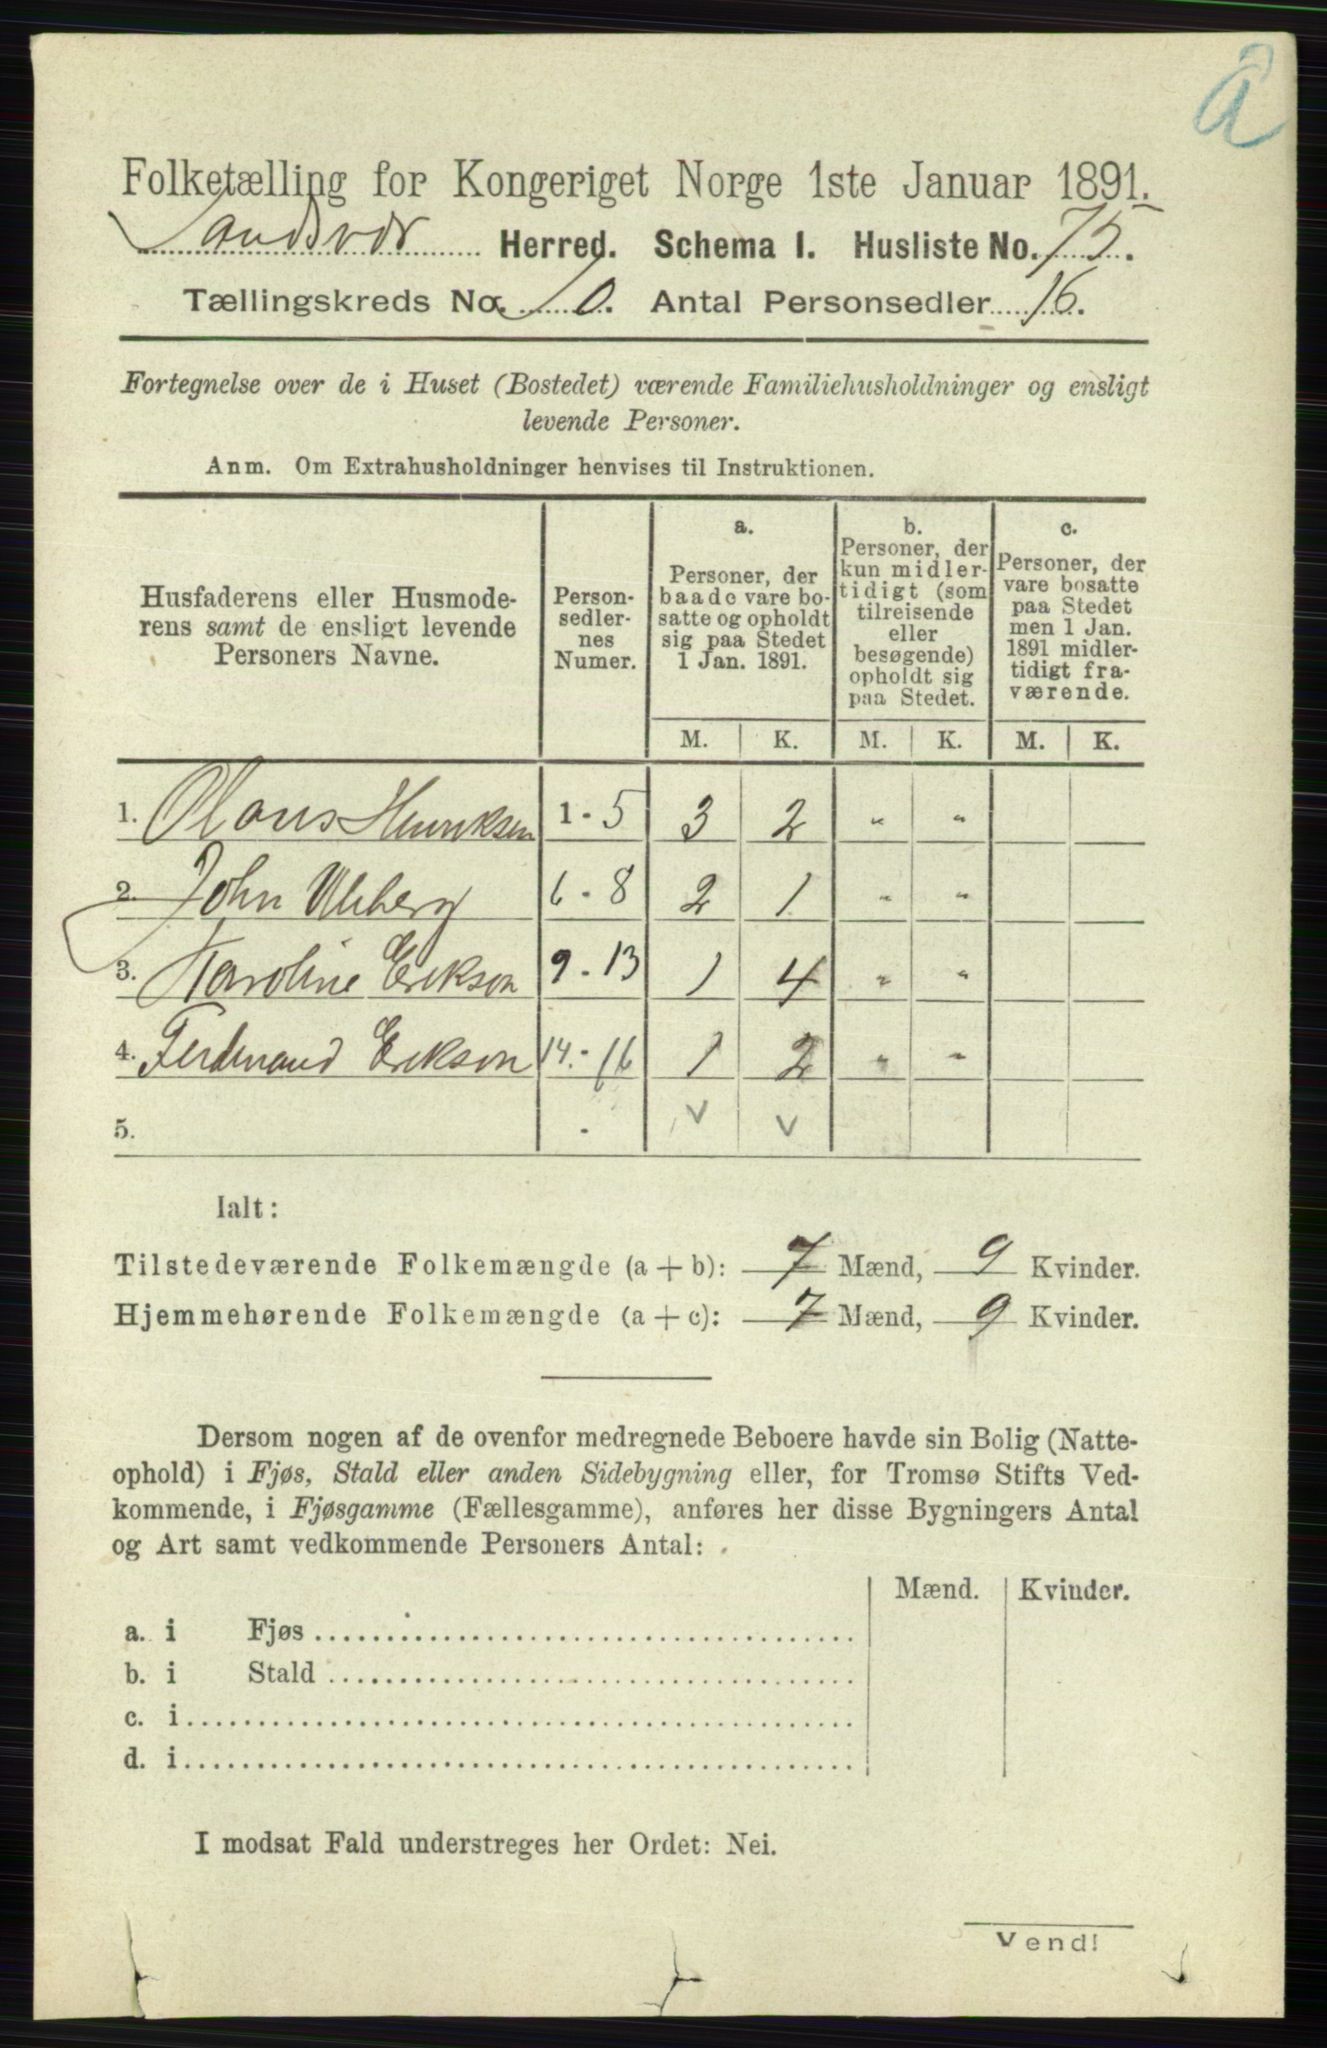 Â
Folketælling for Kongeriget Norge 1ste Januar 1891.
Sandsvær Herred. Schema I. Husliste No. 75.
Tællingskreds No. 10. Antal Personsedler 16.
Fortegnelse over de i Huset (Bostedet) værende Familiehusholdninger og ensligt
levende Personer.
Anm. Om Extrahusholdninger henvises til Instruktionen.
Husfaderens eller Husmode-
rens samt de ensligt levende
Personers Navne.
Person-
sedler-
nes
Numer.
a.
Personer, der
baade vare bo-
satte og opholdt
sig paa Stedet
1 Jan. 1891.
b.
Personer, der
kun midler-
tidigt (som
tilreisende
eller
besøgende)
opholdt sig
paa Stedet.
c.
Personer, der
vare bosatte
paa Stedet
men 1 Jan.
1891 midler-
tidigt fra-
værende.
M. K. M. K. M. K.
1. Olaus Henriksen 1 - 5 3 2 " "
2. John 6 - 8 2 1 " "
3. Karoline Erikson 9 - 13 1 4 " "
4. Ferdinand Erikson 14 - 16 1 2 " "
5. - v v
Ialt:
Tilstedeværende Folkemængde (a + b): 7 Mænd, 9 Kvinder.
Hjemmehørende Folkemængde (a + c): 7 Mænd, 9 Kvinder.
Dersom nogen af de ovenfor medregnede Beboere havde sin Bolig (Natte-
ophold) i Fjøs, Stald eller anden Sidebygning eller, for Tromsø Stifts Ved-
kommende, i Fjøsgamme (Fællesgamme), anføres her disse Bygningers Antal
og Art samt vedkommende Personers Antal:
Mænd. Kvinder.
a. i Fjøs
b. i Stald
c. i
d. i
I modsat Fald understreges her Ordet: Nei.
Vend!